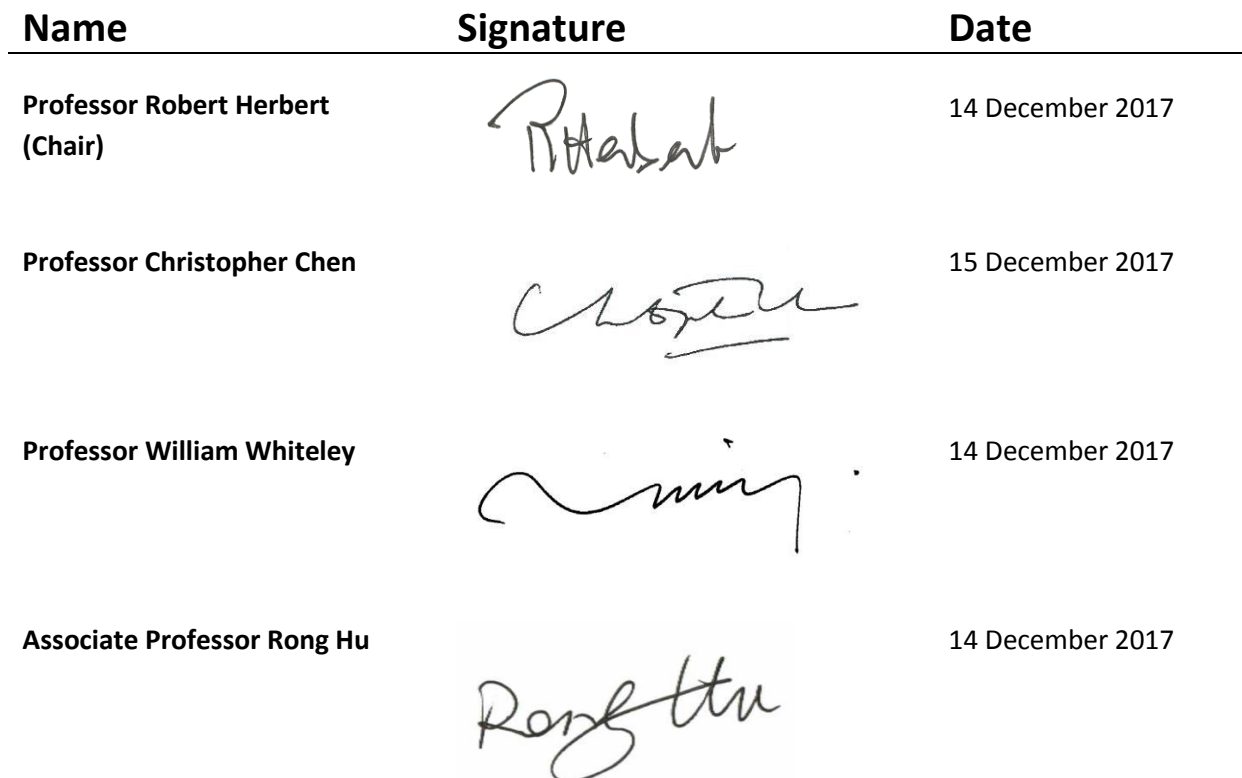 Name Signature Date
Professor Robert Herbert
(Chair)
RHerbert
14 December 2017
Professor Christopher Chen
15 December 2017
Professor William Whiteley
14 December 2017
Associate Professor Rong Hu
Rong Hu
14 December 2017